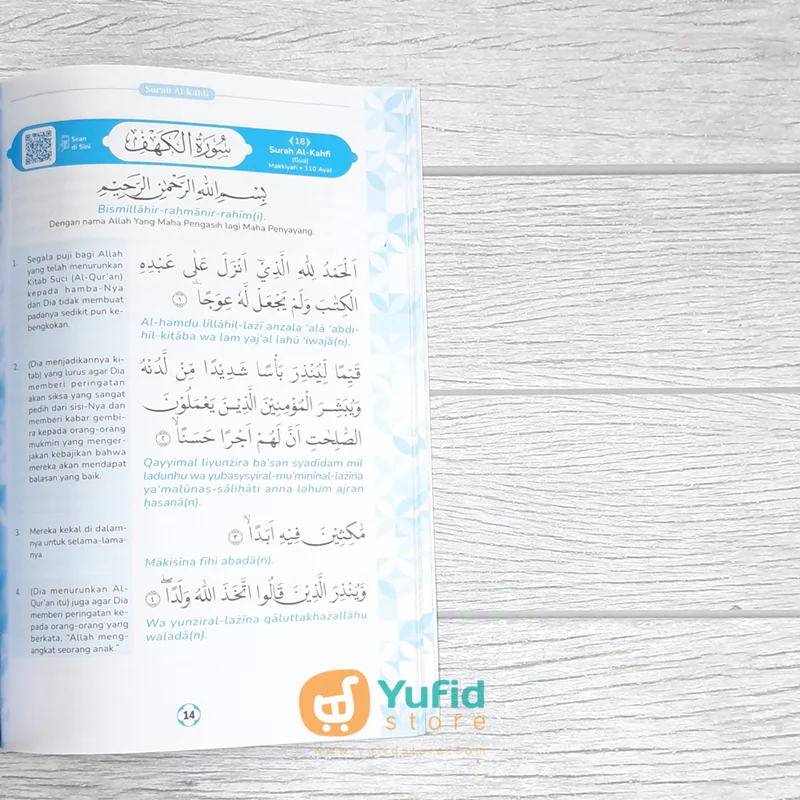 Surah Al-Kahfi
Scan
di Sini
سُوْرَةُ الْكَهْفِ
﴾18﴿
Surah Al-Kahfi
(Gua)
Makkiyah • 110 Ayat
بِسْمِ اللّٰهِ الرَّحْمٰنِ الرَّحِيْمِ
Bismillāhir-raḥmānir-raḥīm(i).
Dengan nama Allah Yang Maha Pengasih lagi Maha Penyayang.
1. Segala puji bagi Allah
yang telah menurunkan
Kitab Suci (Al-Qur'an)
kepada hamba-Nya
dan Dia tidak membuat
padanya sedikit pun ke-
bengkokan.
اَلْحَمْدُ لِلّٰهِ الَّذِيْٓ اَنْزَلَ عَلٰى عَبْدِهِ
الْكِتٰبَ وَلَمْ يَجْعَلْ لَّهٗ عِوَجًا ۜ ١
Al-ḥamdu lillāhil-lażī anzala 'alā 'abdi-
hil-kitāba wa lam yaj'al lahū 'iwajā(n).
2. (Dia menjadikannya ki-
tab) yang lurus agar Dia
memberi peringatan
akan siksa yang sangat
pedih dari sisi-Nya dan
memberi kabar gembi-
ra kepada orang-orang
mukmin yang menger-
jakan kebajikan bahwa
mereka akan mendapat
balasan yang baik.
قَيِّمًا لِّيُنْذِرَ بَأْسًا شَدِيْدًا مِّنْ لَّدُنْهُ
وَيُبَشِّرَ الْمُؤْمِنِيْنَ الَّذِيْنَ يَعْمَلُوْنَ
الصّٰلِحٰتِ اَنَّ لَهُمْ اَجْرًا حَسَنًاۙ ٢
Qayyimal liyunżira ba'san syadīdam mil
ladunhu wa yubasysyiral-mu'minīnal-lażīna
ya'malūnaṣ-ṣāliḥāti anna lahum ajran
ḥasanā(n).
3. Mereka kekal di dalam-
nya untuk selama-lama-
nya.
مّٰكِثِيْنَ فِيْهِ اَبَدًاۙ ٣
Mākiṡīna fīhi abadā(n).
4. (Dia menurunkan Al-
Qur'an itu) juga agar Dia
memberi peringatan ke-
pada orang-orang yang
berkata, "Allah meng-
angkat seorang anak."
وَّيُنْذِرَ الَّذِيْنَ قَالُوا اتَّخَذَ اللّٰهُ وَلَدًاۖ ٤
Wa yunżiral-lażīna qāluttakhażallāhu
waladā(n).
14
Yufid
store
www.yufidstore.com